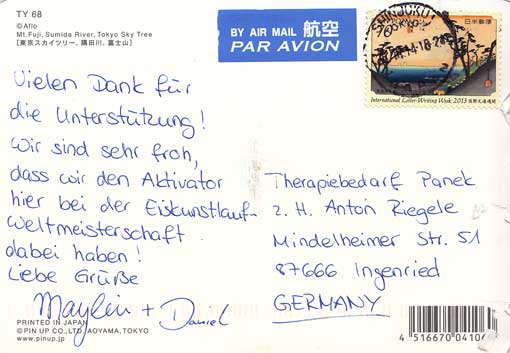 TY 68
©Aflo
Mt.Fuji, Sumida River, Tokyo Sky Tree
[東京スカイツリー、隅田川、富士山]
BY AIR MAIL 航空
PAR AVION
SHINJUKU
TOKYO
日本郵便
70
International Letter-Writing Week 2013 国際文通週間
Vielen Dank für
die Unterstützung!
Wir sind sehr froh,
dass wir den Aktivator
hier bei der Eiskunstlauf-
weltmeisterschaft
dabei haben!
Liebe Grüße
Maylin + Daniel
Therapiebedarf Panek
z. H. Anton Riegele
Mindelheimer Str. 51
87666 Ingenried
GERMANY
PRINTED IN JAPAN
©PIN UP CO., LTD., AOYAMA, TOKYO
www.pinup.jp
4 516670 04104